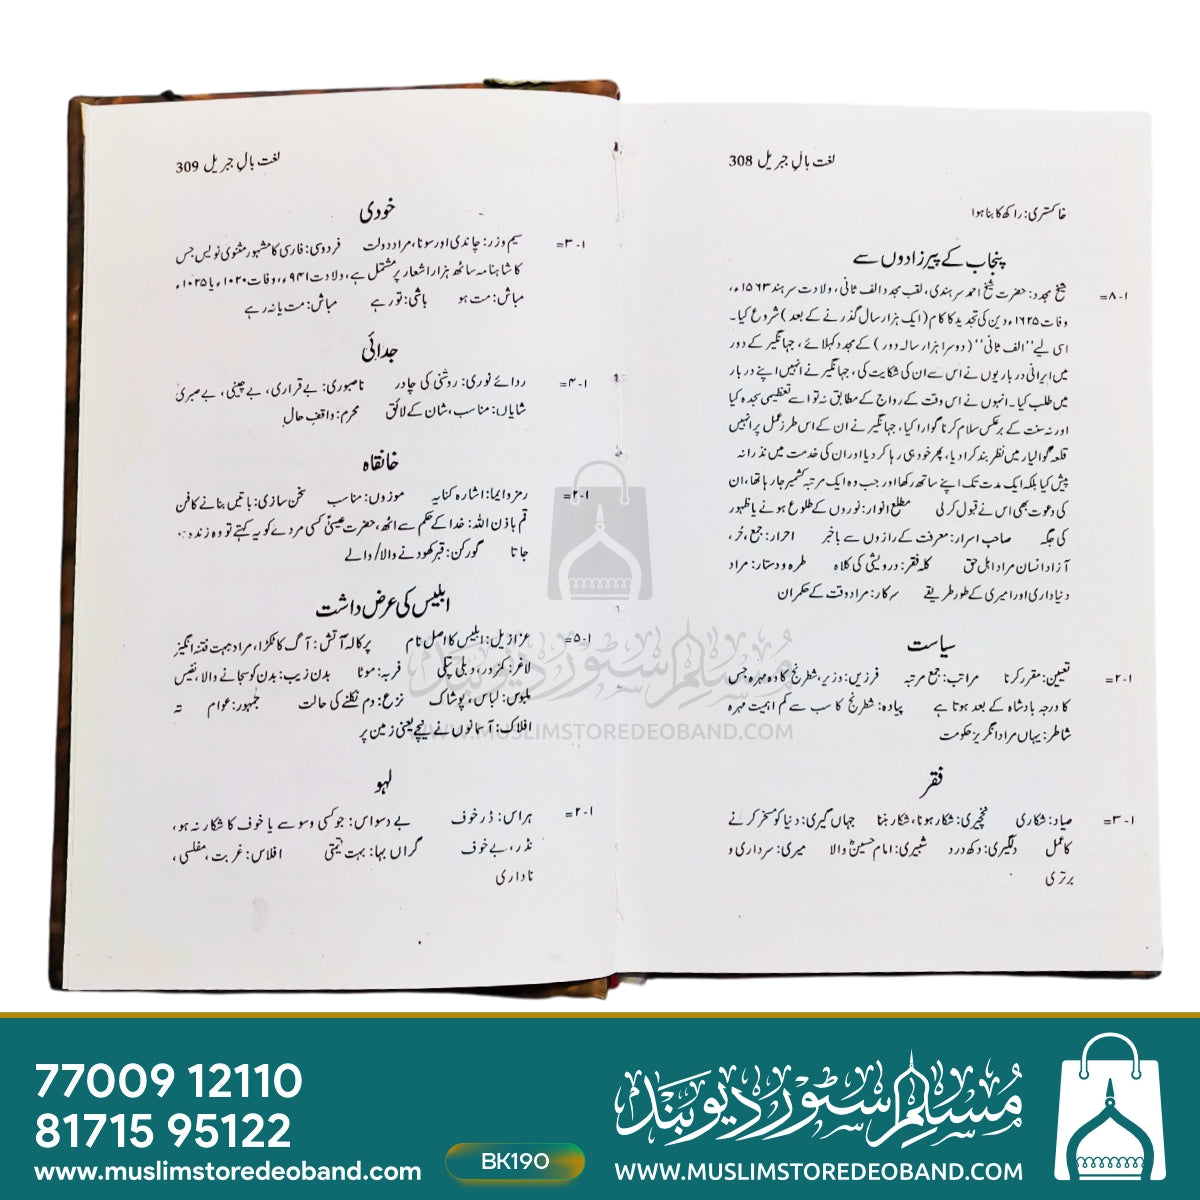 لغت بالِ جبریل 308
خاکستری: راکھ کا بنا ہوا
پنجاب کے پیرزادوں سے
۱-۸= شیخ مجدد: حضرت شیخ احمد سرہندی، لقب مجدد الف ثانی، ولادت سرہند ۱۵۶۳ء،
وفات ۱۶۲۵ء دین کی تجدید کا کام (ایک ہزار سال گذرنے کے بعد) شروع کیا۔
اسی لیے ''الف ثانی'' (دوسرا ہزار سالہ دور) کے مجدد کہلائے، جہانگیر کے دور
میں ایرانی درباریوں نے اس سے ان کی شکایت کی، جہانگیر نے انہیں اپنے دربار
میں طلب کیا۔ انہوں نے اس وقت کے رواج کے مطابق نہ تو اسے تعظیمی سجدہ کیا
اور نہ سنت کے برعکس سلام کرنا گوارا کیا، جہانگیر نے ان کے اس طرز عمل پر انہیں
قلعہ گوالیار میں نظر بند کرا دیا، پھر خود ہی رہا کر دیا اور ان کی خدمت میں نذرانہ
پیش کیا بلکہ ایک مدت تک اپنے ساتھ رکھا اور جب وہ ایک مرتبہ کشمیر جا رہا تھا، ان
کی دعوت بھی اس نے قبول کر لی مطلع انوار: نوروں کے طلوع ہونے یا ظہور
کی جگہ صاحب اسرار: معرفت کے رازوں سے باخبر احرار: جمع، حُر،
آزاد انسان مراد اہل حق کلہ فقر: درویشی کی کلاہ طرہ و دستار: مراد
دنیاداری اور امیری کے طور طریقے سرکار: مراد وقت کے حکمران
سیاست
۱-۲= تعیین: مقرر کرنا مراتب: جمع مرتبہ فرزیں: وزیر، شطرنج کا وہ مہرہ جس
کا درجہ بادشاہ کے بعد ہوتا ہے پیادہ: شطرنج کا سب سے کم اہمیت مہرہ
شاطر: یہاں مراد انگریز حکومت
فقر
۱-۳= صیاد: شکاری نخچیری: شکار ہونا، شکار بننا جہاں گیری: دنیا کو مسخر کرنے
کا عمل دلگیری: دکھ درد شبیری: امام حسینؓ والا میری: سرداری و
برتری
لغت بالِ جبریل 309
خودی
۱-۳= سیم و زر: چاندی اور سونا، مراد دولت فردوسی: فارسی کا مشہور مثنوی نویس جس
کا شاہنامہ ساٹھ ہزار اشعار پر مشتمل ہے، ولادت ۹۴۱ء، وفات ۱۰۲۰ء یا ۱۰۲۵ء
مباش: مت ہو باشی: تو رہے مباش: مت یا نہ رہے
جدائی
۱-۴= ردائے نوری: روشنی کی چادر ناصبوری: بے قراری، بے چینی، بے صبری
شایاں: مناسب، شان کے لائق محرم: واقف حال
خانقاہ
۱-۲= رمز و ایما: اشارہ کنایہ موزوں: مناسب سخن سازی: باتیں بنانے کا فن
قم باذن اللہ: خدا کے حکم سے اٹھ، حضرت عیسیٰؑ کسی مردے کو یہ کہتے تو وہ زندہ ہو
جاتا گورکن: قبر کھودنے والا/والے
ابلیس کی عرض داشت
۱-۵= عزازیل: ابلیس کا اصل نام پرکالہ آتش: آگ کا ٹکڑا، مراد بہت فتنہ انگیز
لاغر: کمزور، دبلی پتلی فربہ: موٹا بدن زیب: بدن کو سجانے والا، نفیس
ملبوس: لباس، پوشاک نزع: دم نکلنے کی حالت جمہور: عوام تہ
افلاک: آسمانوں نے نیچے یعنی زمین پر
لہو
۱-۲= ہراس: ڈر خوف بے وسواس: جو کسی وسوسے یا خوف کا شکار نہ ہو،
نڈر، بے خوف گراں بہا: بہت قیمتی افلاس: غربت، مفلسی،
ناداری
مسلم سٹور دیوبند
WWW.MUSLIMSTOREDEOBAND.COM
77009 12110
81715 95122
www.muslimstoredeoband.com
BK190
مسلم سٹور دیوبند
WWW.MUSLIMSTOREDEOBAND.COM